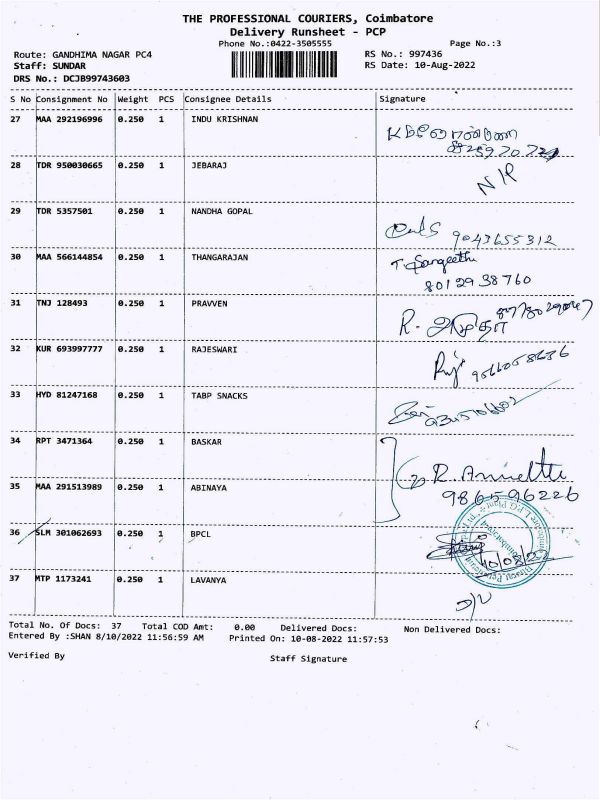 THE PROFESSIONAL COURIERS, Coimbatore
Delivery Runsheet - PCP
Phone No.:0422-3505555
Page No.:3
Route: GANDHIMA NAGAR PC4
RS No.: 997436
Staff: SUNDAR
RS Date: 10-Aug-2022
DRS No.: DCJB99743603
S No Consignment No Weight PCS Consignee Details Signature
27 MAA 292196996 0.250 1 INDU KRISHNAN
28 TDR 950030665 0.250 1 JEBARAJ
29 TDR 5357501 0.250 1 NANDHA GOPAL
9043655312
30 MAA 566144854 0.250 1 THANGARAJAN T. Sangeetha
8012938760
31 TNJ 128493 0.250 1 PRAVVEN
R.
32 KUR 693997777 0.250 1 RAJESWARI
9566058636
33 HYD 81247168 0.250 1 TABP SNACKS
34 RPT 3471364 0.250 1 BASKAR
R.
35 MAA 291513989 0.250 1 ABINAYA
986596226
36 SLM 301062693 0.250 1 BPCL
10/08/22
37 MTP 1173241 0.250 1 LAVANYA
Total No. Of Docs: 37 Total COD Amt: 0.00 Delivered Docs: Non Delivered Docs:
Entered By :SHAN 8/10/2022 11:56:59 AM Printed On: 10-08-2022 11:57:53
Verified By Staff Signature